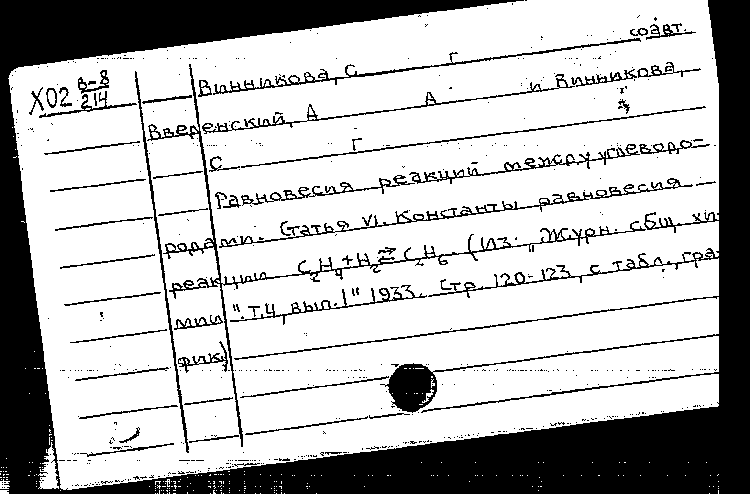 Х02 В-8/214
Винникова, С Г соавт.
Введенский, А А и Винникова,
С Г
Равновесия реакций между углеводо-
родами. Статья VI. Константы равновесия
реакции C₂H₄+H₂⇄C₂H₆ (Из: „Журн. общ. хи-
мии". Т.4, вып.1" 1933. Стр. 120-123, с табл., гра-
фик)